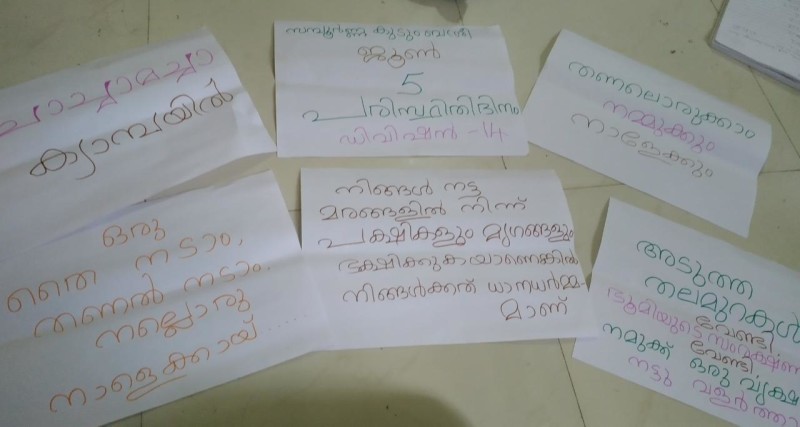 ചാച്ചാമച്ചാ
ക്യാമ്പയിൽ
സമ്പൂർണ്ണ കുടുംബശ്രീ
ജൂൺ
5
പരിസ്ഥിതിദിനം
ഡിവിഷൻ -14
തണലൊരുക്കാം
നമ്മുക്കും
നാളേക്കും
ഒരു
തൈ നടാം,
തണൽ നടാം.
നല്ലൊരു
നാളെക്കായ്.....
നിങ്ങൾ നട്ട
മരങ്ങളിൽ നിന്ന്
പക്ഷികളും മൃഗങ്ങളും
ഭക്ഷിക്കുകയാണെങ്കിൽ
നിങ്ങൾക്കത് ധാനധർമ്മ-
മാണ്
അടുത്ത
തലമുറകൾ
വേണ്ടി
ഭൂമിയുടെ സംരക്ഷണ
വേണ്ടി
നമുക്ക് ഒരു വൃക്ഷ
നട്ടു വളർത്താ